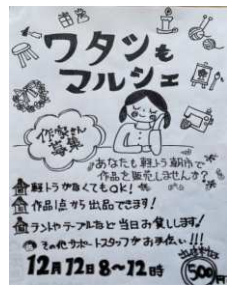 ワタシも
マルシェ
作家さん
募集
あなたも軽トラ朝市で
作品を販売しませんか?
軽トラがなくてもOK!
作品1点から出品できます!
テントやテーブルなど当日お貸します!
その他サポートスタッフがお手伝い!!!
12月12日8〜12時
500円